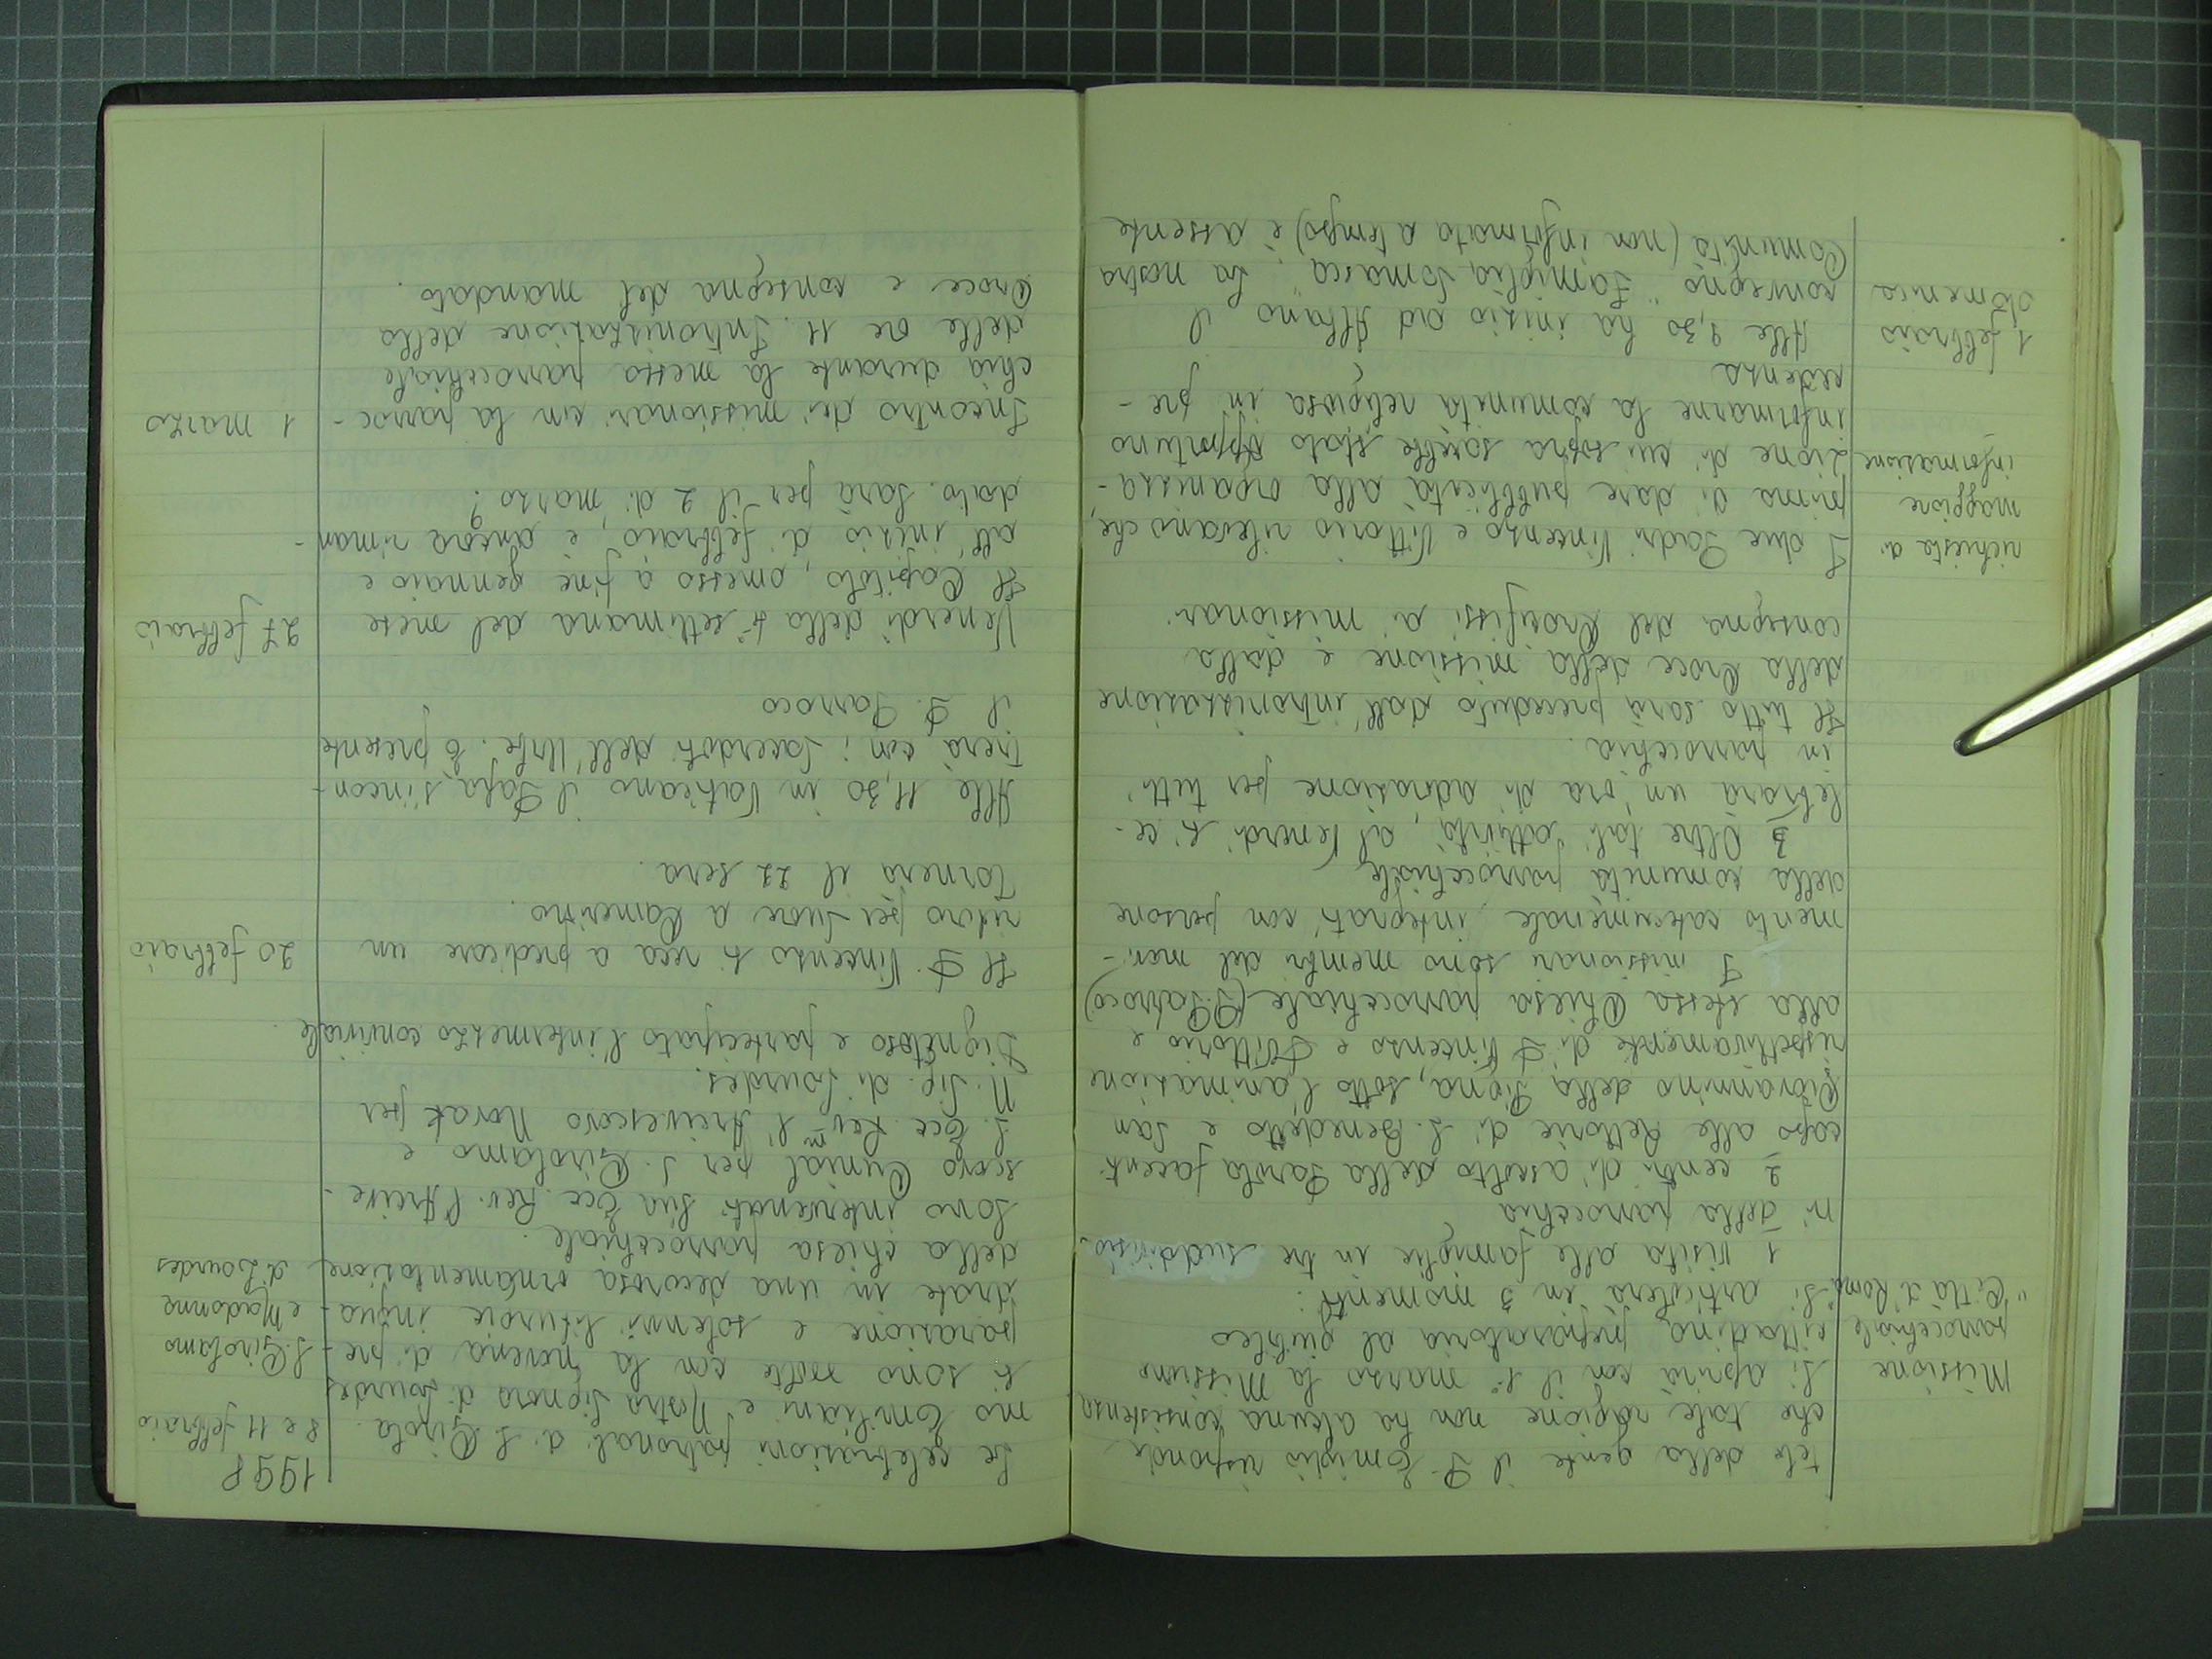 tele della gente il P. Emiglio risponde
che tale ragione non ha alcuna consistenza
Missione
parrocchiale
"Città di Roma"
Si aprirà con il 1° marzo la Missione
cittadina, preparatoria al giubileo
Si articolerà in 3 momenti:
1 Visita alle famiglie in tre suddivisio-
ni della parrocchia
2 centri di ascolto della Parola facenti
capo alle Rettorie di S. Benedetto e San
Giovannino della Pigna, sotto l'animazione
rispettivamente di P. Vincenzo e P. Vittorio e
alla stessa Chiesa parrocchiale (P. Parroco)
I missionari sono membri del movi-
mento catecumenale, integrati con persone
della comunità parrocchiale
3 Oltre tali attività, al Venerdì si ce-
lebrarà un'ora di adorazione per tutti
in parrocchia.
Il tutto sarà preceduto dall'intronizzazione
della Croce della missione e dalla
consegna dei Crocifissi ai missionari.
richiesta di
maggiore
informazione
I due Padri Vincenzo e Vittorio rilevano che,
prima di dare pubblicità alla organizza-
zione di cui sopra sarebbe stato opportuno
informarne la comunità religiosa in pre-
cedenza
1 febbraio
domenica
Alle 9,30 ha inizio ad Albano il
convegno "Famiglia Somasca". La nostra
Comunità (non informata a tempo) è assente
1998
8 e 11 febbraio
S. Girolamo
e Madonna
di Lourdes
Le celebrazioni patronali di S. Girola-
mo Emiliani e Nostra Signora di Lourdes
si sono svolte con la novena di pre-
parazione e solenni liturgie inqua-
drate in una decorosa ornamentazione
della chiesa parrocchiale.
Sono intervenuti Sua Ecc. Rev. l'Arcive-
scovo Cunial per S. Girolamo e
S. Ecc. Rev.m l'Arcivescovo Novak per
N. Sig. di Lourdes.
Dignitoso e partecipato l'intermezzo conviviale.
20 febbraio
Il P. Vincenzo si reca a predicare un
ritiro per Suore a Camerino.
Tornerà il 22 sera.
Alle 11,30 in Vaticano il Papa s'incon-
trerà con i Sacerdoti dell'Urbe. È presente
il P. Parroco
27 febbraio
Venerdì della 4° settimana del mese
Il Capitolo, omesso a fine gennaio e
all'inizio di febbraio, è ancora riman-
dato. Sarà per il 2 di marzo?
1 marzo
Incontro dei missionari con la parroc-
chia durante la messa parrocchiale
delle ore 11. Intronizzazione della
Croce e consegna del mandato.